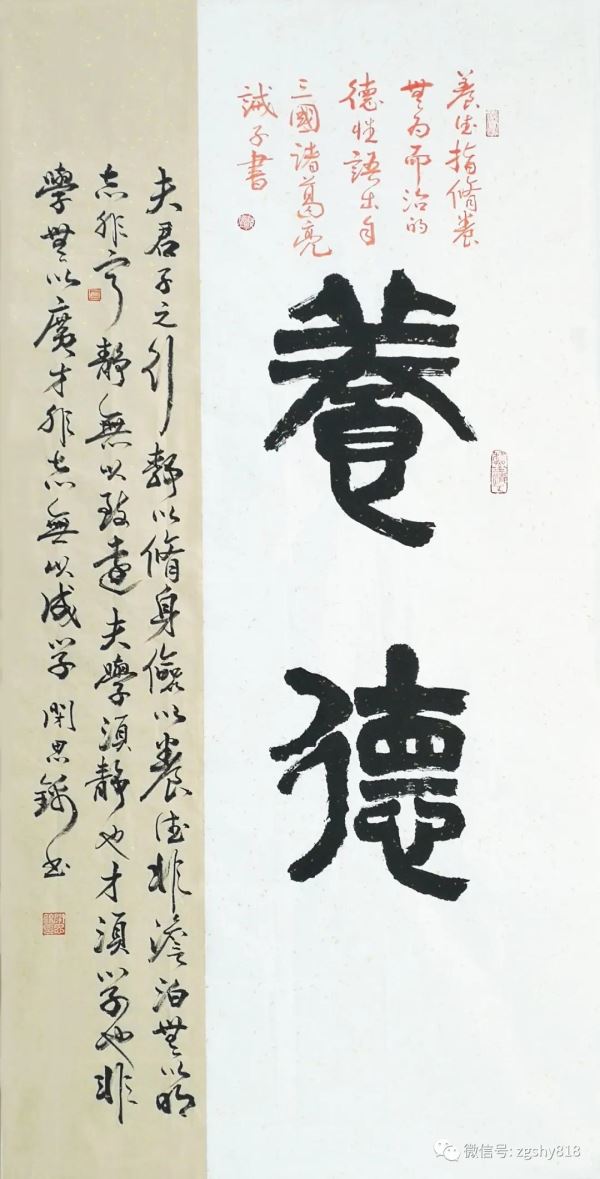 養德指脩養
無為而治的
德性語出自
三國諸葛亮
誡子書
養
德
夫君子之行靜以脩身儉以養德非澹泊無以明
志非寧靜無以致遠夫學須靜也才須学也非
學無以廣才非志無以成学 思 书
微信号: zgshy818